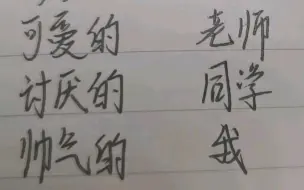 可爱的 老师
讨厌的 同学
帅气的 我